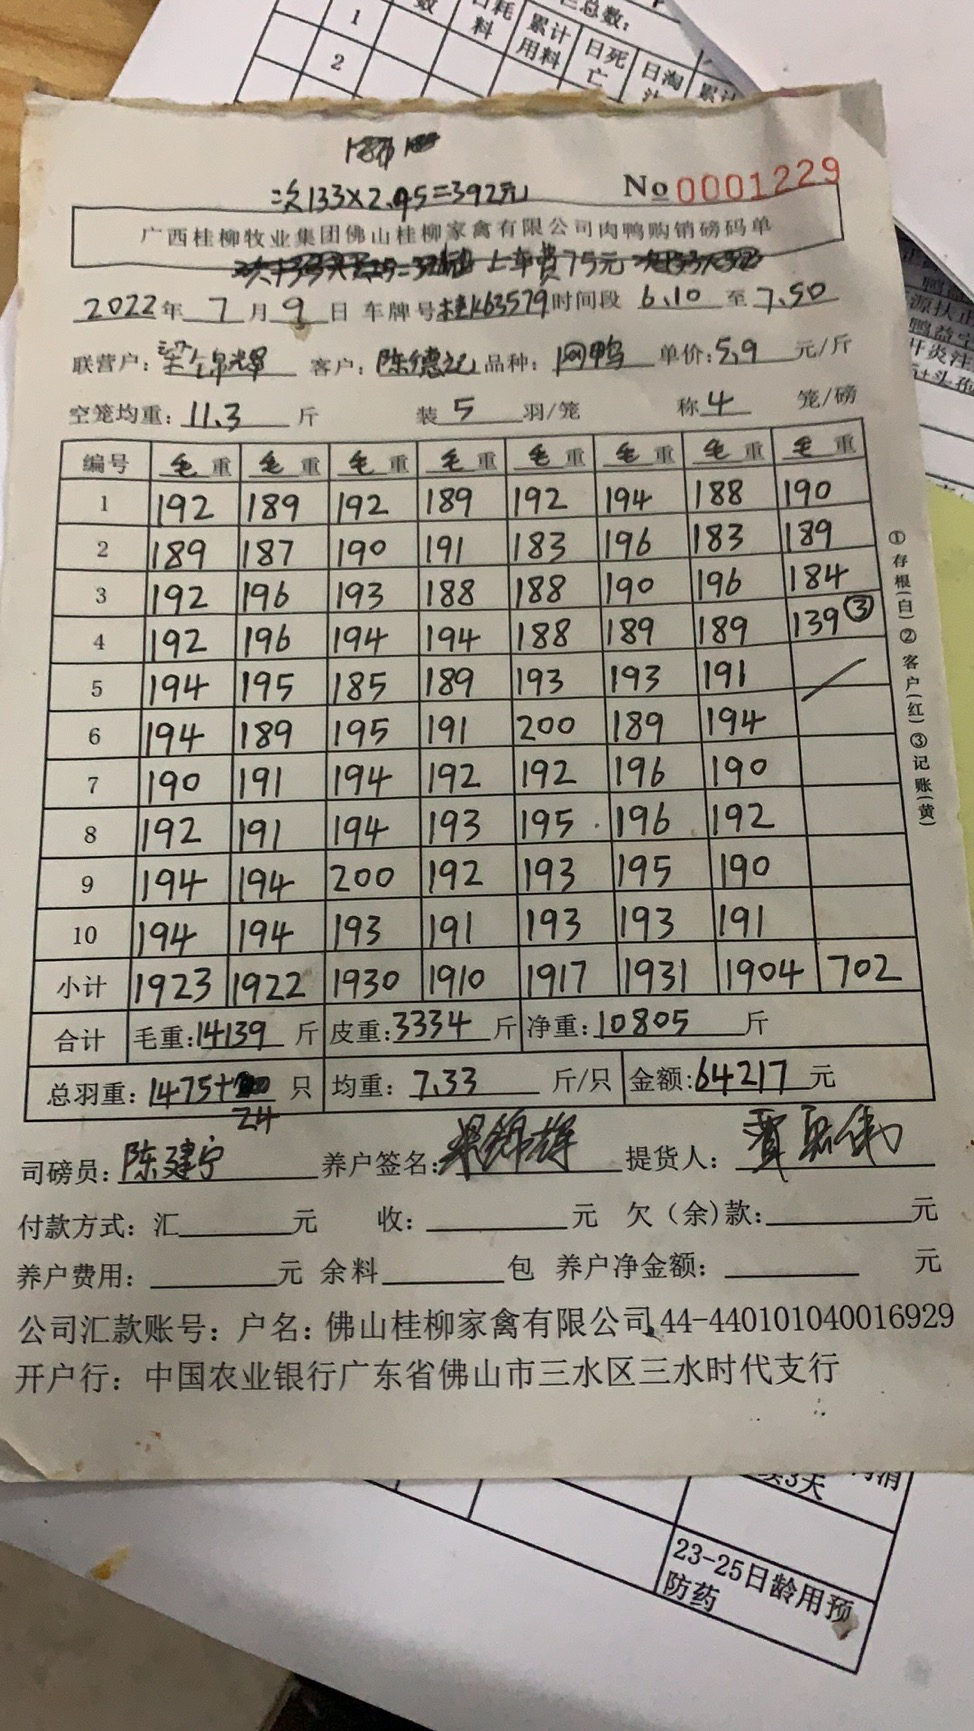 数
日耗料
累计用料
总数:
日死亡
日淘汰
累计
1
2
次133×2.95=392元
No 0001229
广西桂柳牧业集团佛山桂柳家禽有限公司肉鸭购销磅码单
上车费75元
2022年 7月 9日 车牌号桂K63579 时间段 6.10 至 7.50
联营户: 梁锦辉 客户: 陈德记 品种: 网鸭 单价: 5.9 元/斤
空笼均重: 11.3 斤 装 5 羽/笼 称 4 笼/磅
编号 毛重 毛重 毛重 毛重 毛重 毛重 毛重 毛重
1 192 189 192 189 192 194 188 190
2 189 187 190 191 183 196 183 189
3 192 196 193 188 188 190 196 184
4 192 196 194 194 188 189 189 139③
5 194 195 185 189 193 193 191
6 194 189 195 191 200 189 194
7 190 191 194 192 192 196 190
8 192 191 194 193 195 196 192
9 194 194 200 192 193 195 190
10 194 194 193 191 193 193 191
小计 1923 1922 1930 1910 1917 1931 1904 702
合计 毛重: 14139 斤 皮重: 3334 斤 净重: 10805 斤
总羽重: 1475+24 只 均重: 7.33 斤/只 金额: 64217 元
①存根(白)②客户(红)③记账(黄)
司磅员: 陈建宁 养户签名: 梁锦辉 提货人:
付款方式: 汇 元 收: 元 欠(余)款: 元
养户费用: 元 余料 包 养户净金额: 元
公司汇款账号: 户名: 佛山桂柳家禽有限公司 44-440101040016929
开户行: 中国农业银行广东省佛山市三水区三水时代支行
23-25日龄用预防药